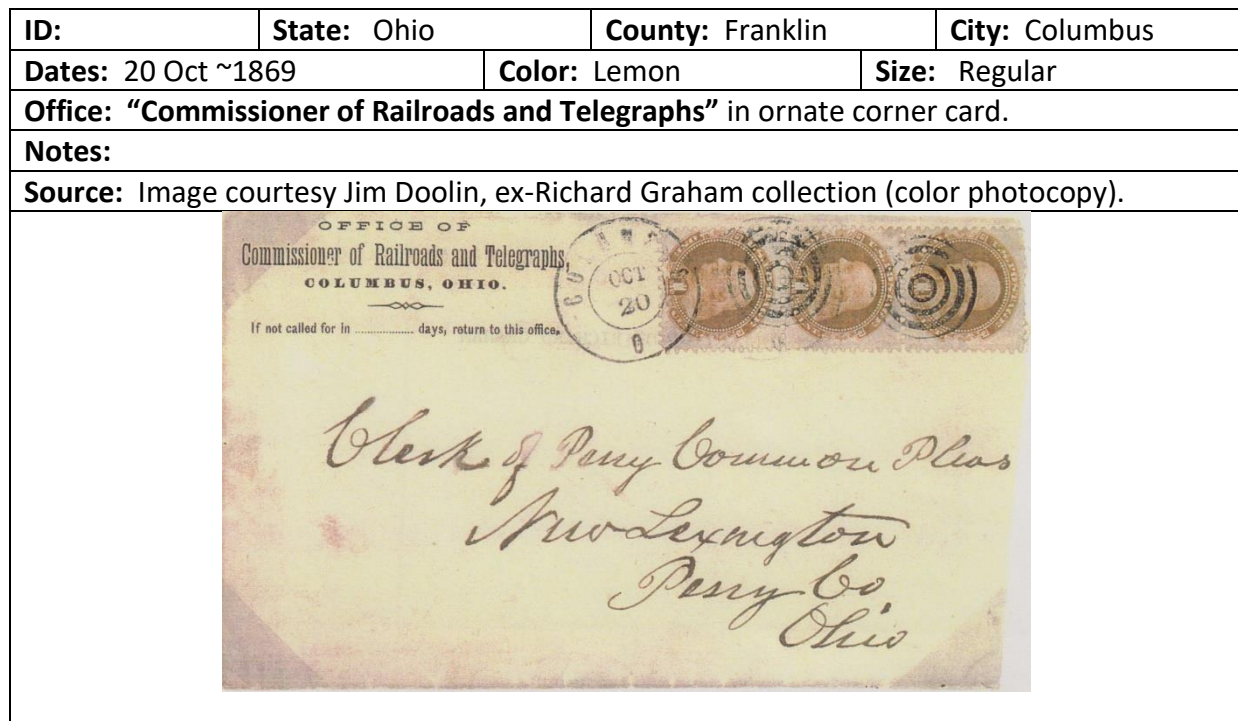 ID: State: Ohio County: Franklin City: Columbus
Dates: 20 Oct ~1869 Color: Lemon Size: Regular
Office: “Commissioner of Railroads and Telegraphs” in ornate corner card.
Notes:
Source: Image courtesy Jim Doolin, ex-Richard Graham collection (color photocopy).
OFFICE OF
Commissioner of Railroads and Telegraphs,
COLUMBUS, OHIO.
If not called for in ................ days, return to this office.
OCT
20
O
Clerk of Perry Common Pleas
New Lexington
Perry Co.
Ohio